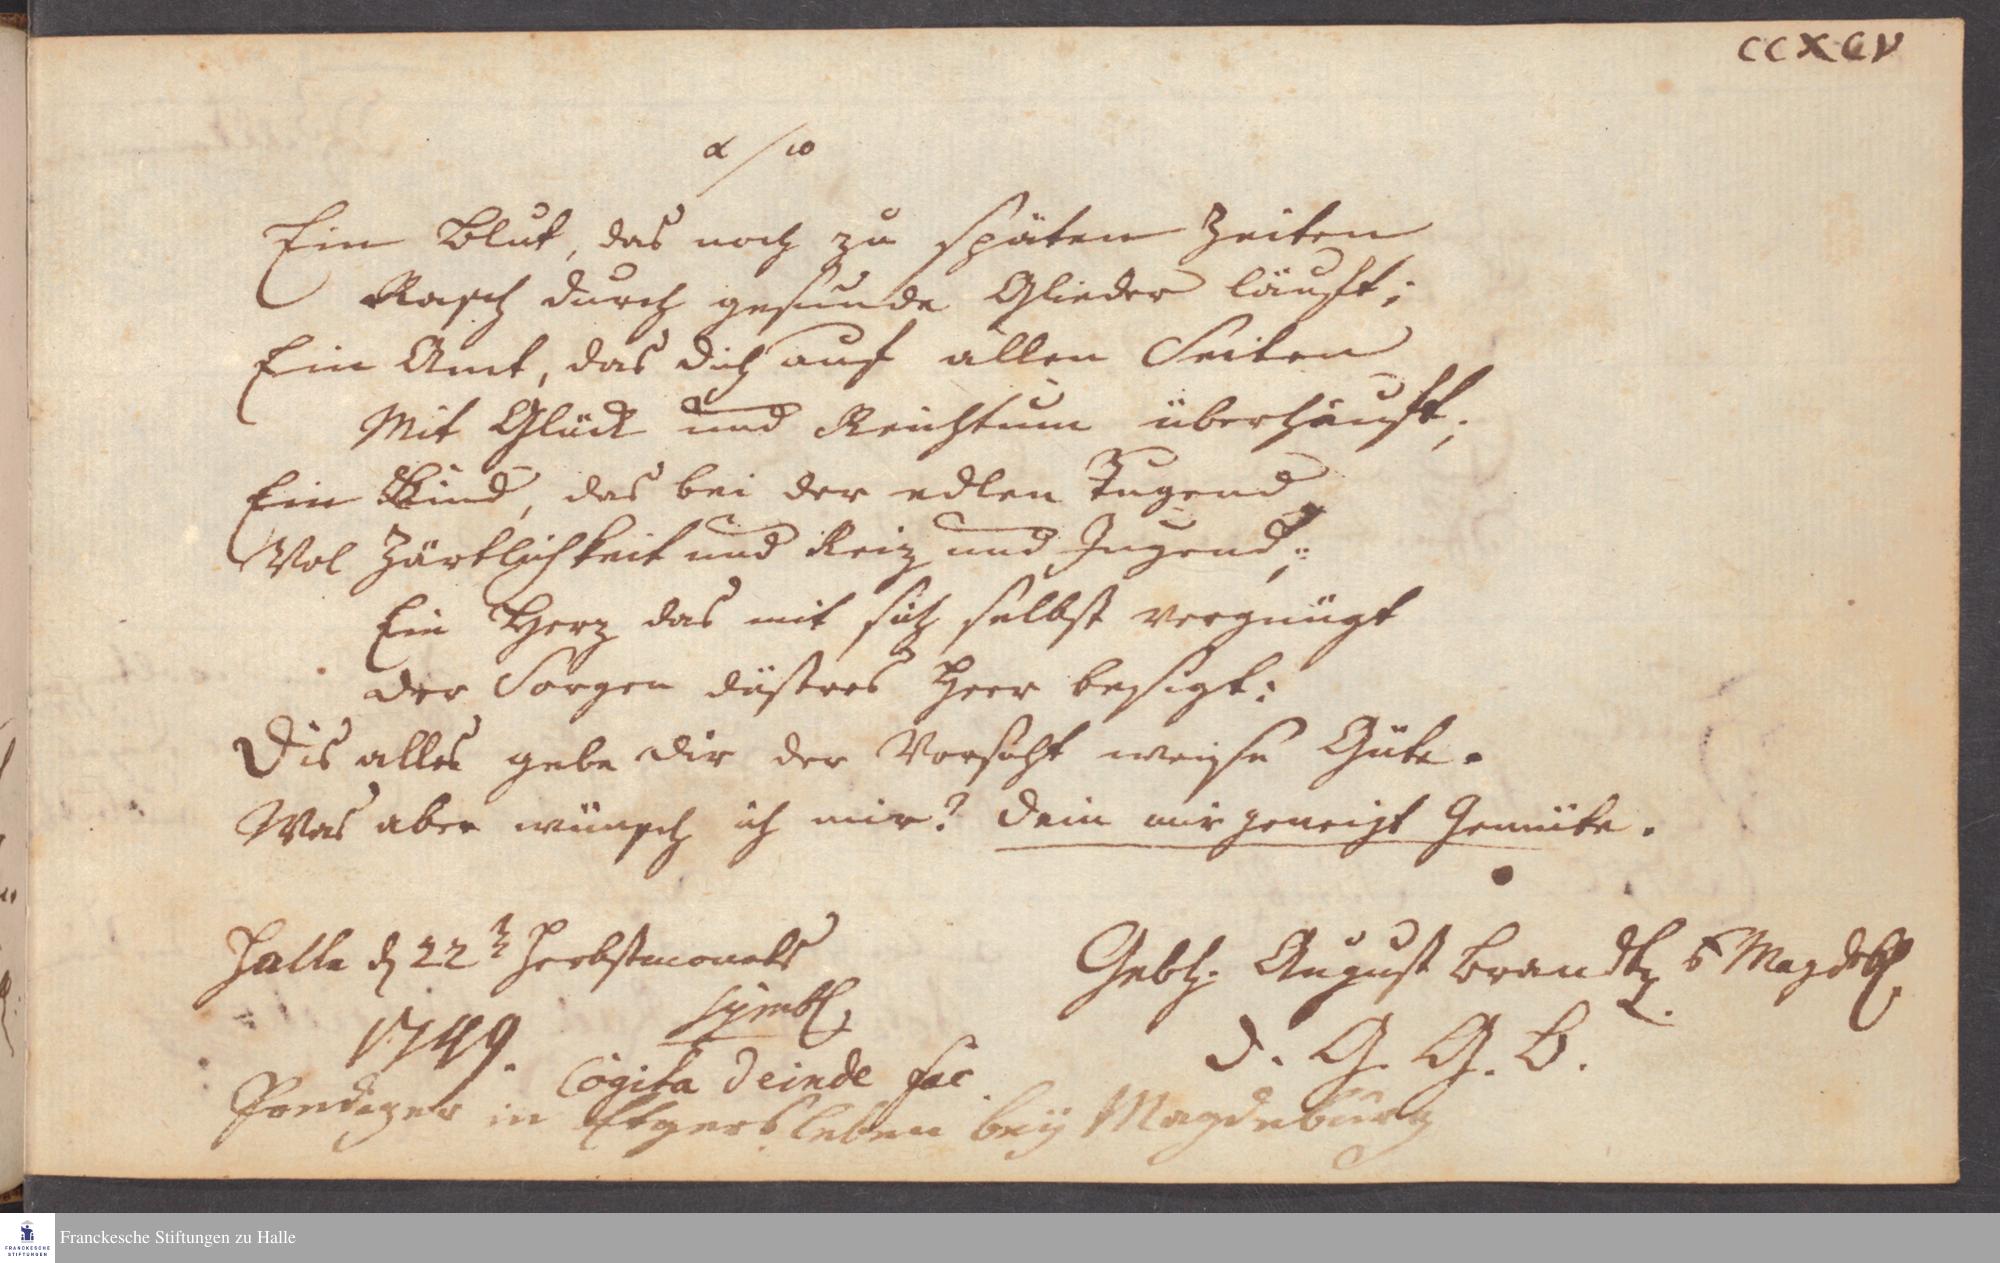 CCXCV
α / ω
Ein Blut, das noch zu späten Zeiten
Rasch durch gesunde Glieder läuft;
Ein Amt, das dich auf allen Seiten
Mit Glück und Reichtum überhäuft;
Ein Kind, das bei der edlen Tugend
Vol Zärtlichkeit und Reiz und Jugend;
Ein Herz das mit sich selbst vergnügt
der Sorgen düstres Heer besigt:
Dis alles gebe dir der Vorsicht weise Güte.
Was aber wünsch ich mir? dein mir geneigt Gemüte.
Halle d 22 Herbstmonats
1749.
Gebh. August Brandt Magdeb.
symbl.
Cogita deinde fac
d. G. G. B.
Prediger in Etgersleben beÿ Magdeburg
FRANCKESCHE STIFTUNGEN
Franckesche Stiftungen zu Halle